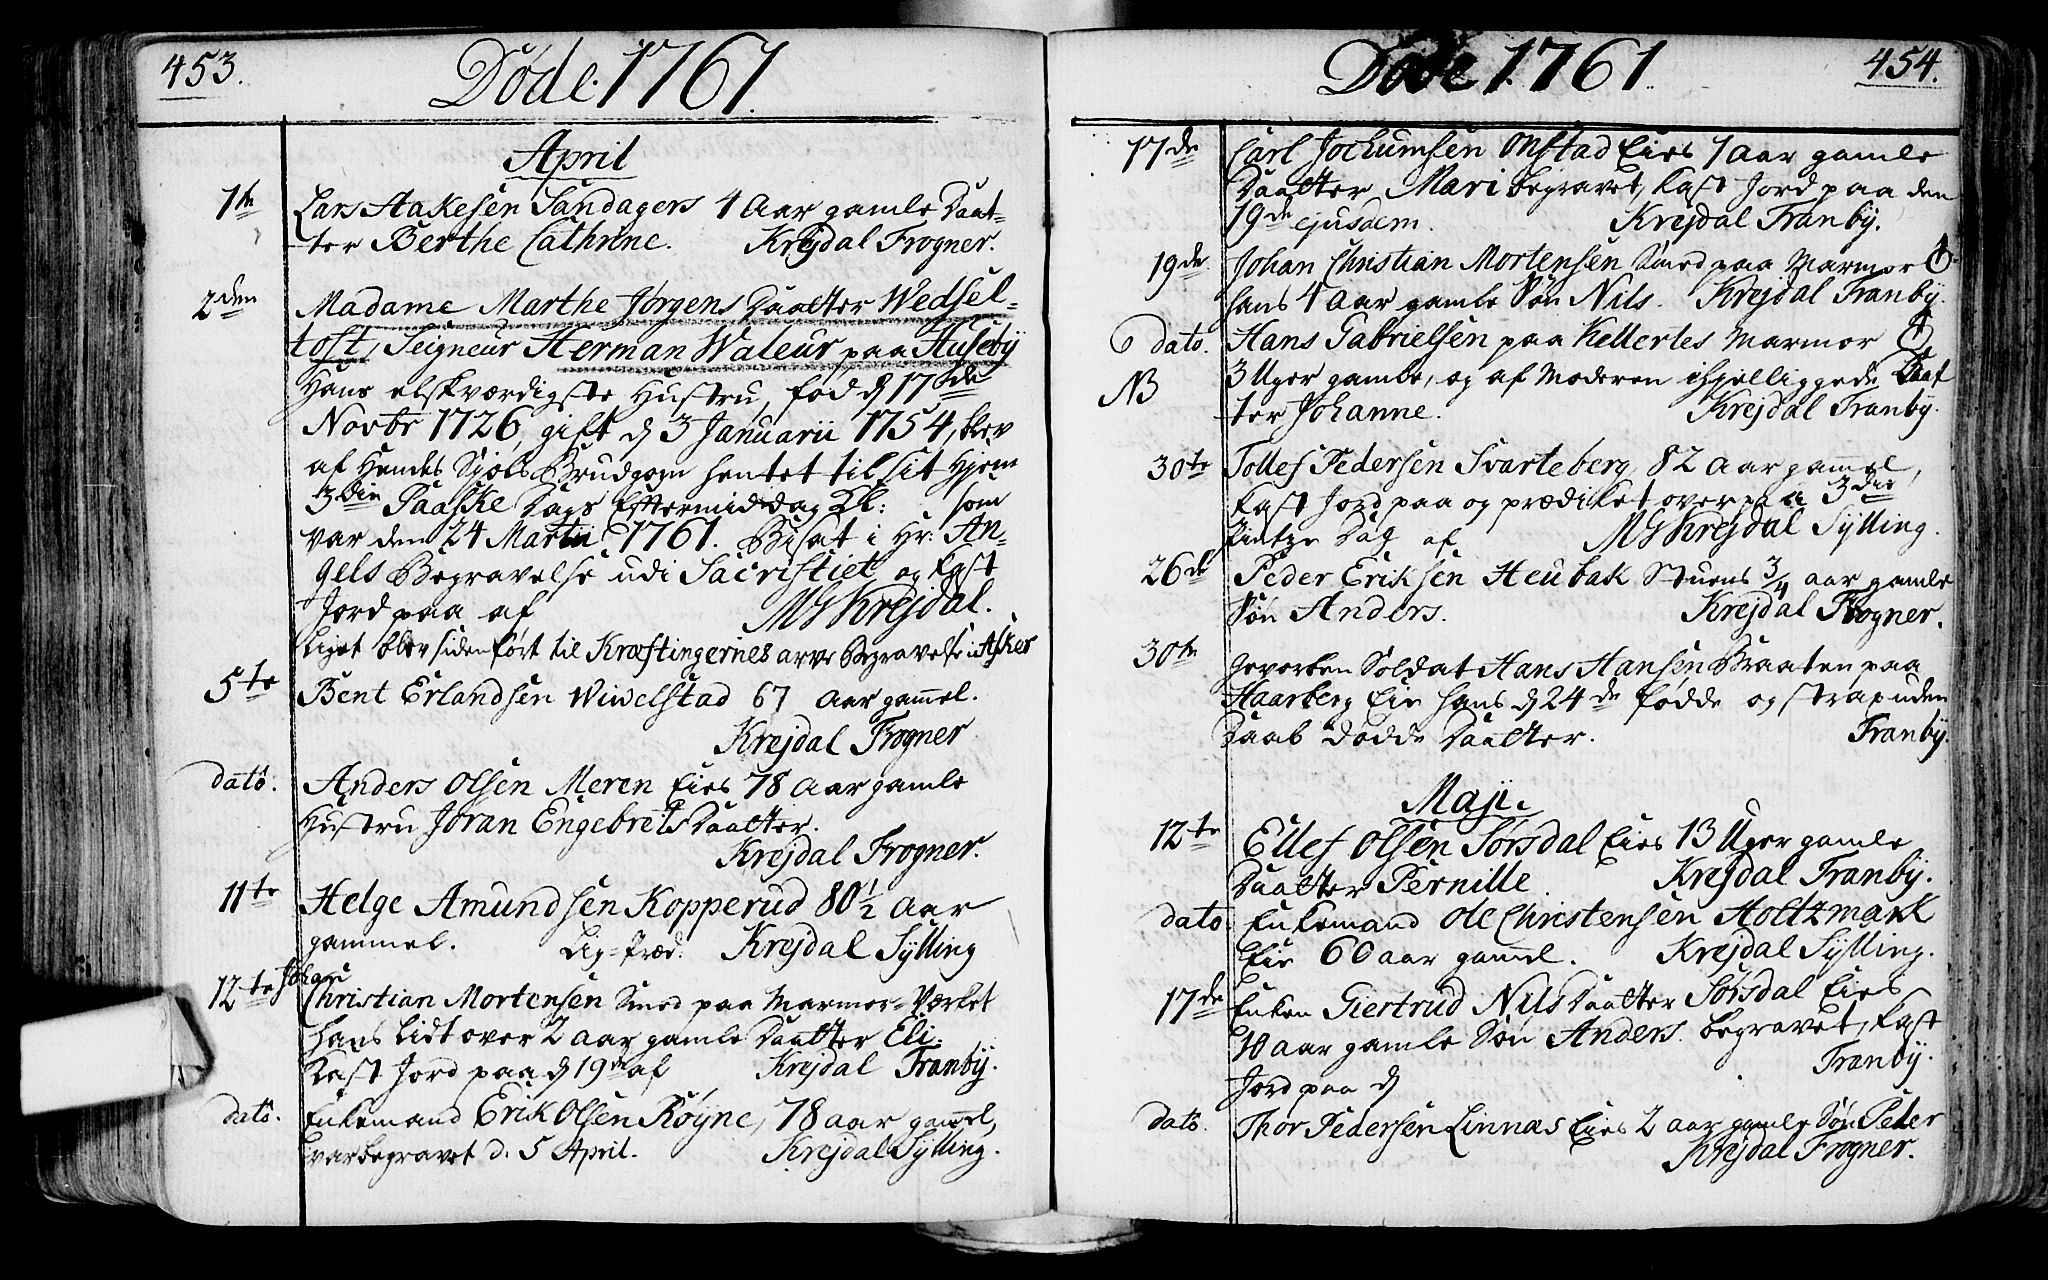 453.
Døde 1761.
April
1te Lars Aakesen Sandagers 4 Aar gamle Daat-
ter Berthe Cathrine. Krejdal Frogner.
2den Madame Marthe Jørgens Daatter Wedsel-
toft, Seigneur Herman Waleur paa Huseby
Hans elskværdigste Hustru, fød d 17de
Novbr 1726, gift d 3 Januarii 1754, blev
af Hendes Sjæls Brudgom hentet til sit Hjem
3die Paaske Dags Eftermiddag Kl: som
var den 24 Martii 1761. Bisat i Hr: An-
gels Begravelse udi Sacristiet, og kast
Jord paa af MG Krejdal.
Liget blev siden ført til Kræftingernes arve Begravelse i Asker
5te Bent Erlandsen Wiwelstad 67 Aar gam̄el.
Krejdal Frogner
dato. Anders Olsen Meren Eies 78 Aar gamle
Hustru Joran Engebrets Daatter.
Krejdal Frogner.
11te Helge Amundsen Kopperud 80 1/2 Aar
gammel. Lig-Præd. Krejdal Sylling
12te Johan
Christian Mortensen Smed paa Marmor-Værket
hans lidt over 2 aar gamle Daatter Eli.
Kast Jord paa d 19de af Krejdal Franby.
dato. Enkemand Erik Olsen Røyne, 78 aar gam̄el,
var begravet d. 5 April. Krejdal Sylling.
454.
Døde 1761.
17de Carl Jochumsen Onstad Eies 7 Aar gamle
Daatter Mari begravet, kast Jord paa den
19de ejusdem. Krejdal Franby.
19de Johan Christian Mortensen Smed paa Marmor
hans 4 Aar gamle Søn Nils. Krejdal Franby.
dato. Hans Gabrielsen paa Kellertes Marmor
NB 3 Uger gamle, og af Moderen ihjelliggede Daat
ter Johanne. Krejdal Franby.
30te Tollef Pedersen Svarteberg 82 Aar gam̄el,
kast Jord paa og prædiket over paa 3die
Pintze Dag af MG Krejdal Sylling.
26de Peder Eriksen Heubak Stuens 3/4 aar gamle
Søn Anders. Krejdal Frogner.
30te Hans Hansen Braaten paa
Haarberg Eie hans d 24de fødde og strax uden
Daab døde Daatter. Franby.
Maji.
12te Ellef Olsen Sørsdal Eies 13 Uger gamle
Daatter Pernille. Krejdal Franby.
dato. Enkemand Ole Christensen Holtzmark
Eie 60 aar gam̄el. Krejdal Sylling.
17de Enken Giertrud Nils Daatter Sørsdal Eies
10 aar gamle Søn Anders. begravet, kast
Jord paa d Franby.
dato. Thor Pedersen Linnæs Eies 2 aar gamle Søn Peder
Krejdal Frogner.